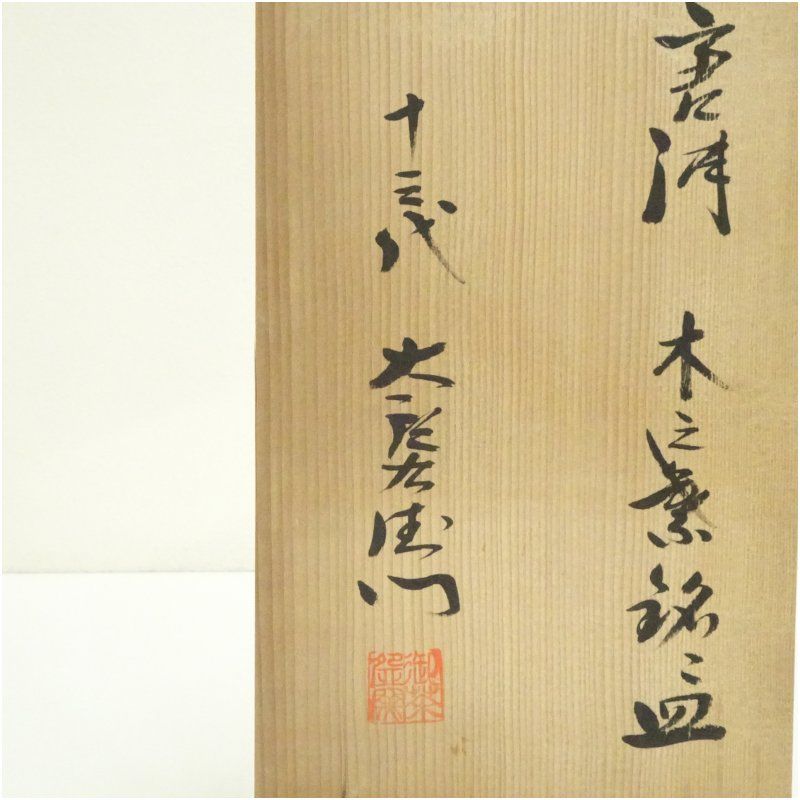 唐津 木之葉銘々皿
十三代 太郎右衛門
御茶盌窯